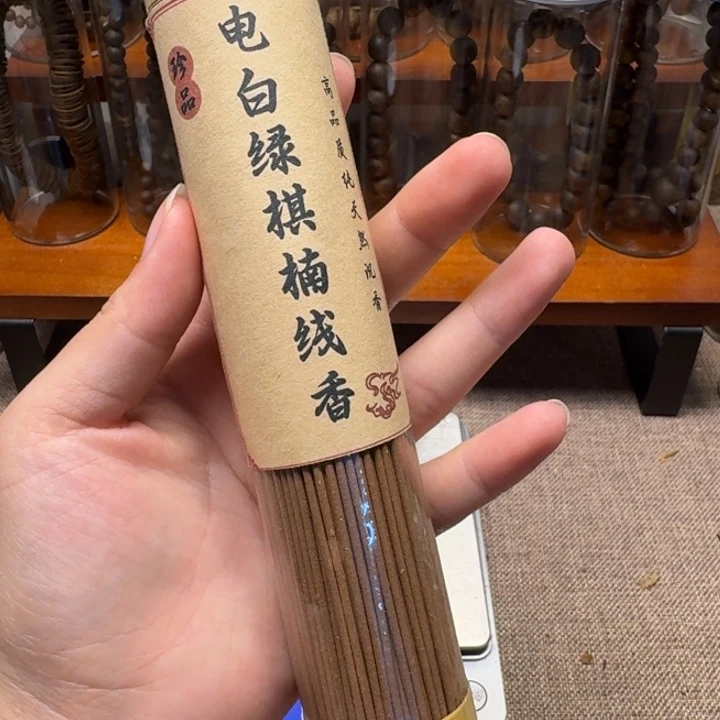 珍品
电白绿棋楠线香
高品质纯天然沉香